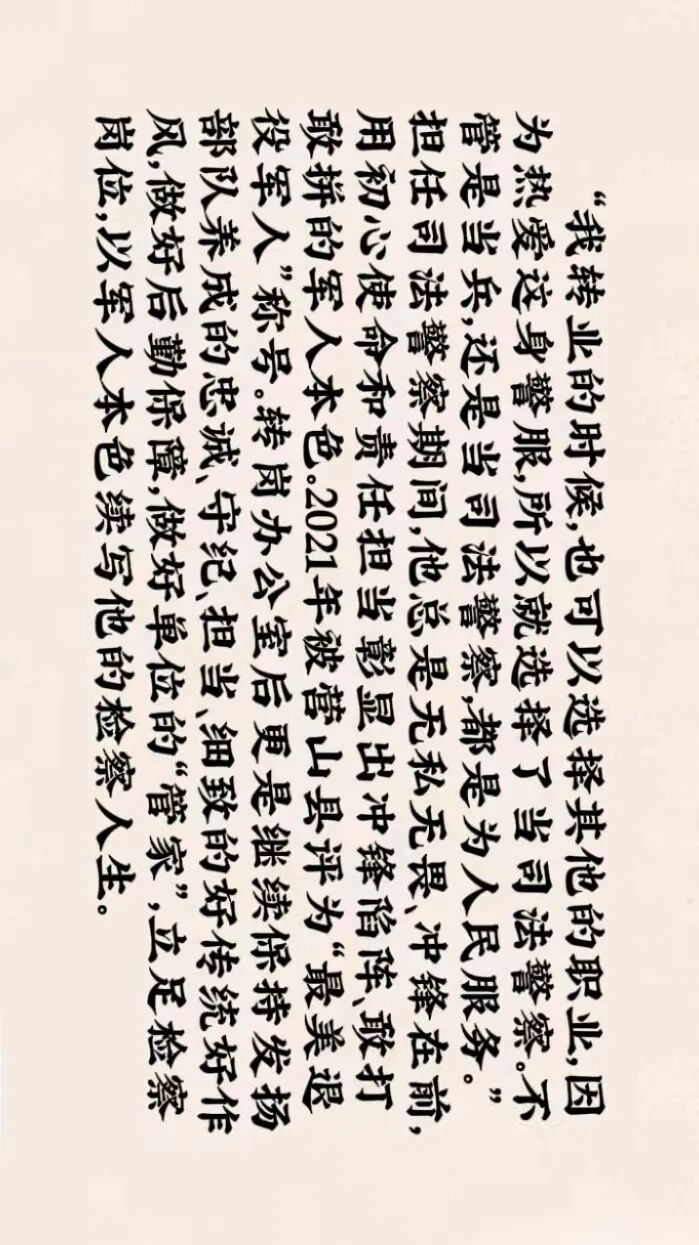 “我转业的时候,也可以选择其他的职业,因
为热爱这身警服,所以就选择了当司法警察。不
管是当兵,还是当司法警察,都是为人民服务。”
担任司法警察期间,他总是无私无畏、冲锋在前,
用初心使命和责任担当彰显出冲锋陷阵、敢打
敢拼的军人本色。2021年被营山县评为“最美退
役军人”称号。转岗办公室后更是继续保持发扬
部队养成的忠诚、守纪、担当、细致的好传统好作
风,做好后勤保障,做好单位的“管家”,立足检察
岗位,以军人本色续写他的检察人生。